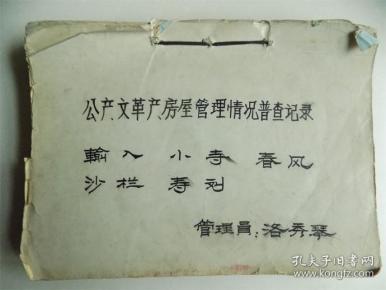 公产、文革产、房屋管理情况普查记录
輸入 小寺 春风
沙栏 寿刘
管理員：洛秀琴
孔夫子旧书网